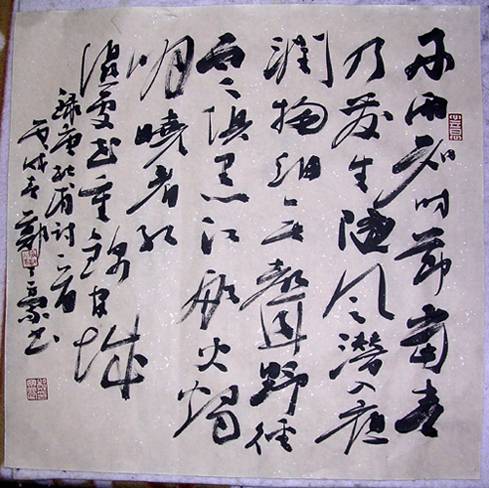 好雨知时節當春
乃發生随風潜入夜
潤物細无聲野徑
雲俱黑江船火獨
明曉看紅
濕處花重錦官城
録唐杜甫詩一首
春鄭書